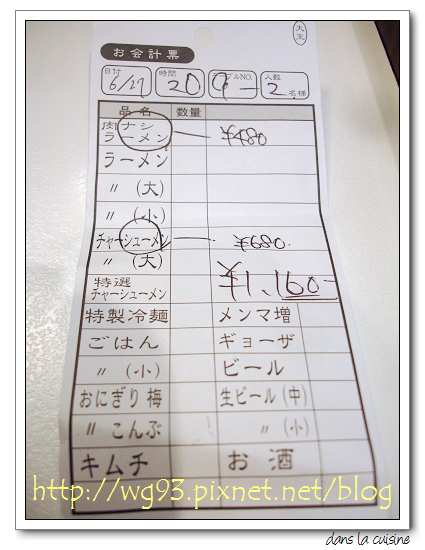 大王
お会計票
日付 6/17 時間 20 テーブルNO. 9 人数 2 名様
品名 数量
肉ナシラーメン ¥480
ラーメン
〃 (大)
〃 (小)
チャーシューメン ¥680
〃 (大)
特選チャーシューメン ¥1,160-
特製冷麺 メンマ増
ごはん ギョーザ
〃 (小) ビール
おにぎり梅 生ビール(中)
〃 こんぶ 〃 (小)
キムチ お酒
http://wg93.pixnet.net/blog
dans la cuisine